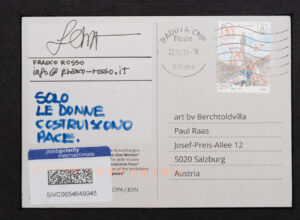 FRANCO ROSSO
info@franco-rosso.it
SOLO
LE DONNE
COSTRUISCONO
PACE.
postapriority
internazionale
5IVC0054645045
OPA / JOIN
PADOVA CMP
Poste
Italiane
art bv Berchtoldvilla
Paul Raas
Josef-Preis-Allee 12
5020 Salzburg
Austria